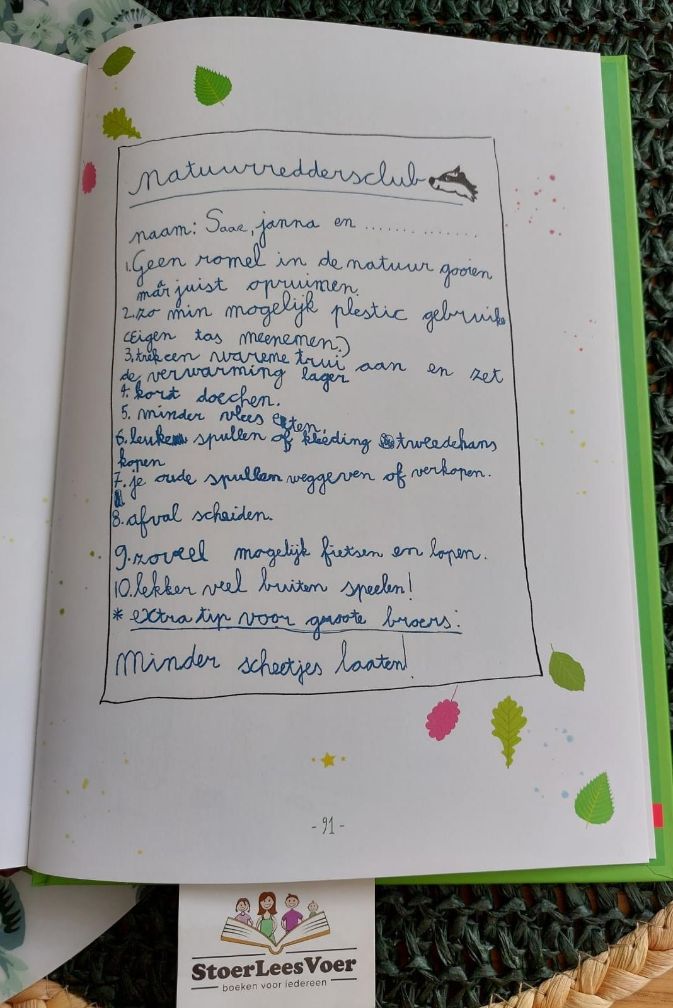 natuurreddersclub
naam: Saar, janna en ..............
1. Geen romel in de natuur gooien
mar juist opruimen.
2. zo min mogelijk plestic gebruike
(Eigen tas meenemen.)
3. trek een wareme trui aan en zet
de verwarming lager
4. kort doechen.
5. minder vlees eten.
6. leuke spullen of kleding tweedehans
kopen
7. je oude spullen weggeven of verkopen.
8. afval scheiden.
9. zoveel mogelijk fietsen en lopen.
10. lekker veel buiten speelen!
* extra tip voor groote broers:
Minder scheetjes laaten!
- 91 -
StoerLeesVoer
boeken voor iedereen